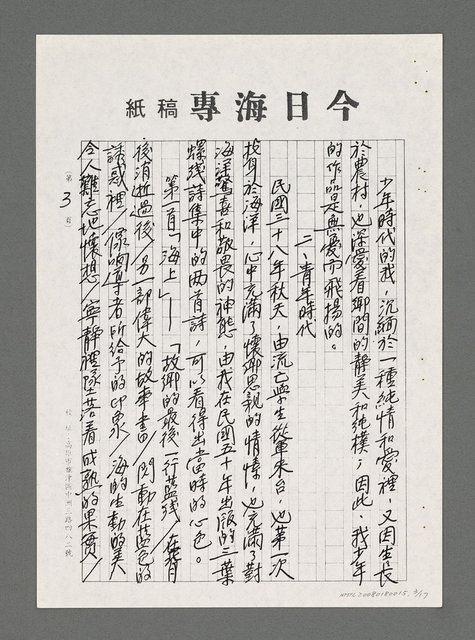 今日海專稿紙
少年時代的我，沉緬於一種純情和愛裡，又因生長
於農村，也深愛着鄉間的靜美和純樸；因此，我少年
的作品是無憂而飛揚的。
二、青年時代
民國三十八年秋天，由流亡學生從軍來台，也第一次
投身於海洋，心中充滿了懷鄉思親的情愫，也充滿了對
海洋驚喜和敬畏的神態，由我在民國五十年出版的三葉
螺綫詩集中的两首詩，可以看得出當時的心色。
第一首「海上」—「故鄉的最後一行藍綫／在背
後消逝過後／另一部偉大的故事書／閃動在藍色的
誘惑裡／像响導者所給予的印象／海的生動的美
令人難忘地懷想／寧靜裡墜落着成熟的果實／
第 3 頁
校址：高雄市旗津區中洲三路四八二號
NMTL20080180015. 3/17